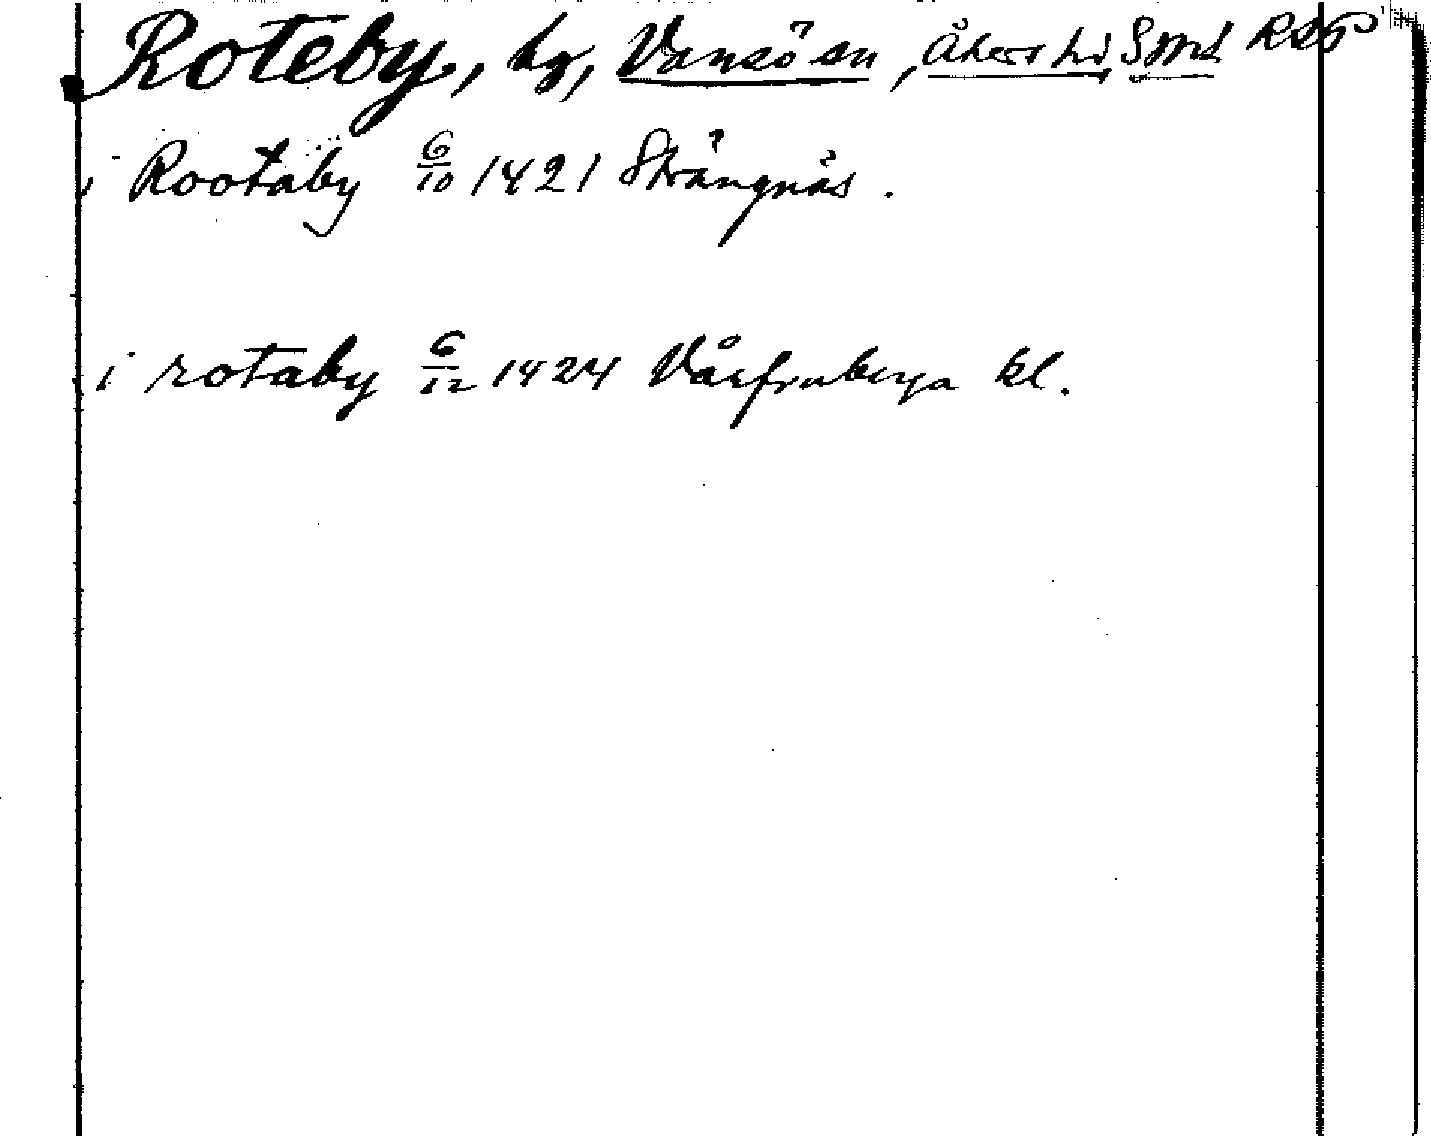 Roteby, by, Vansö sn, Åkers hd, Smd
i Rootaby 6/10 1421 Strängnäs.
i rotaby 6/12 1424 Vårfruberga kl.